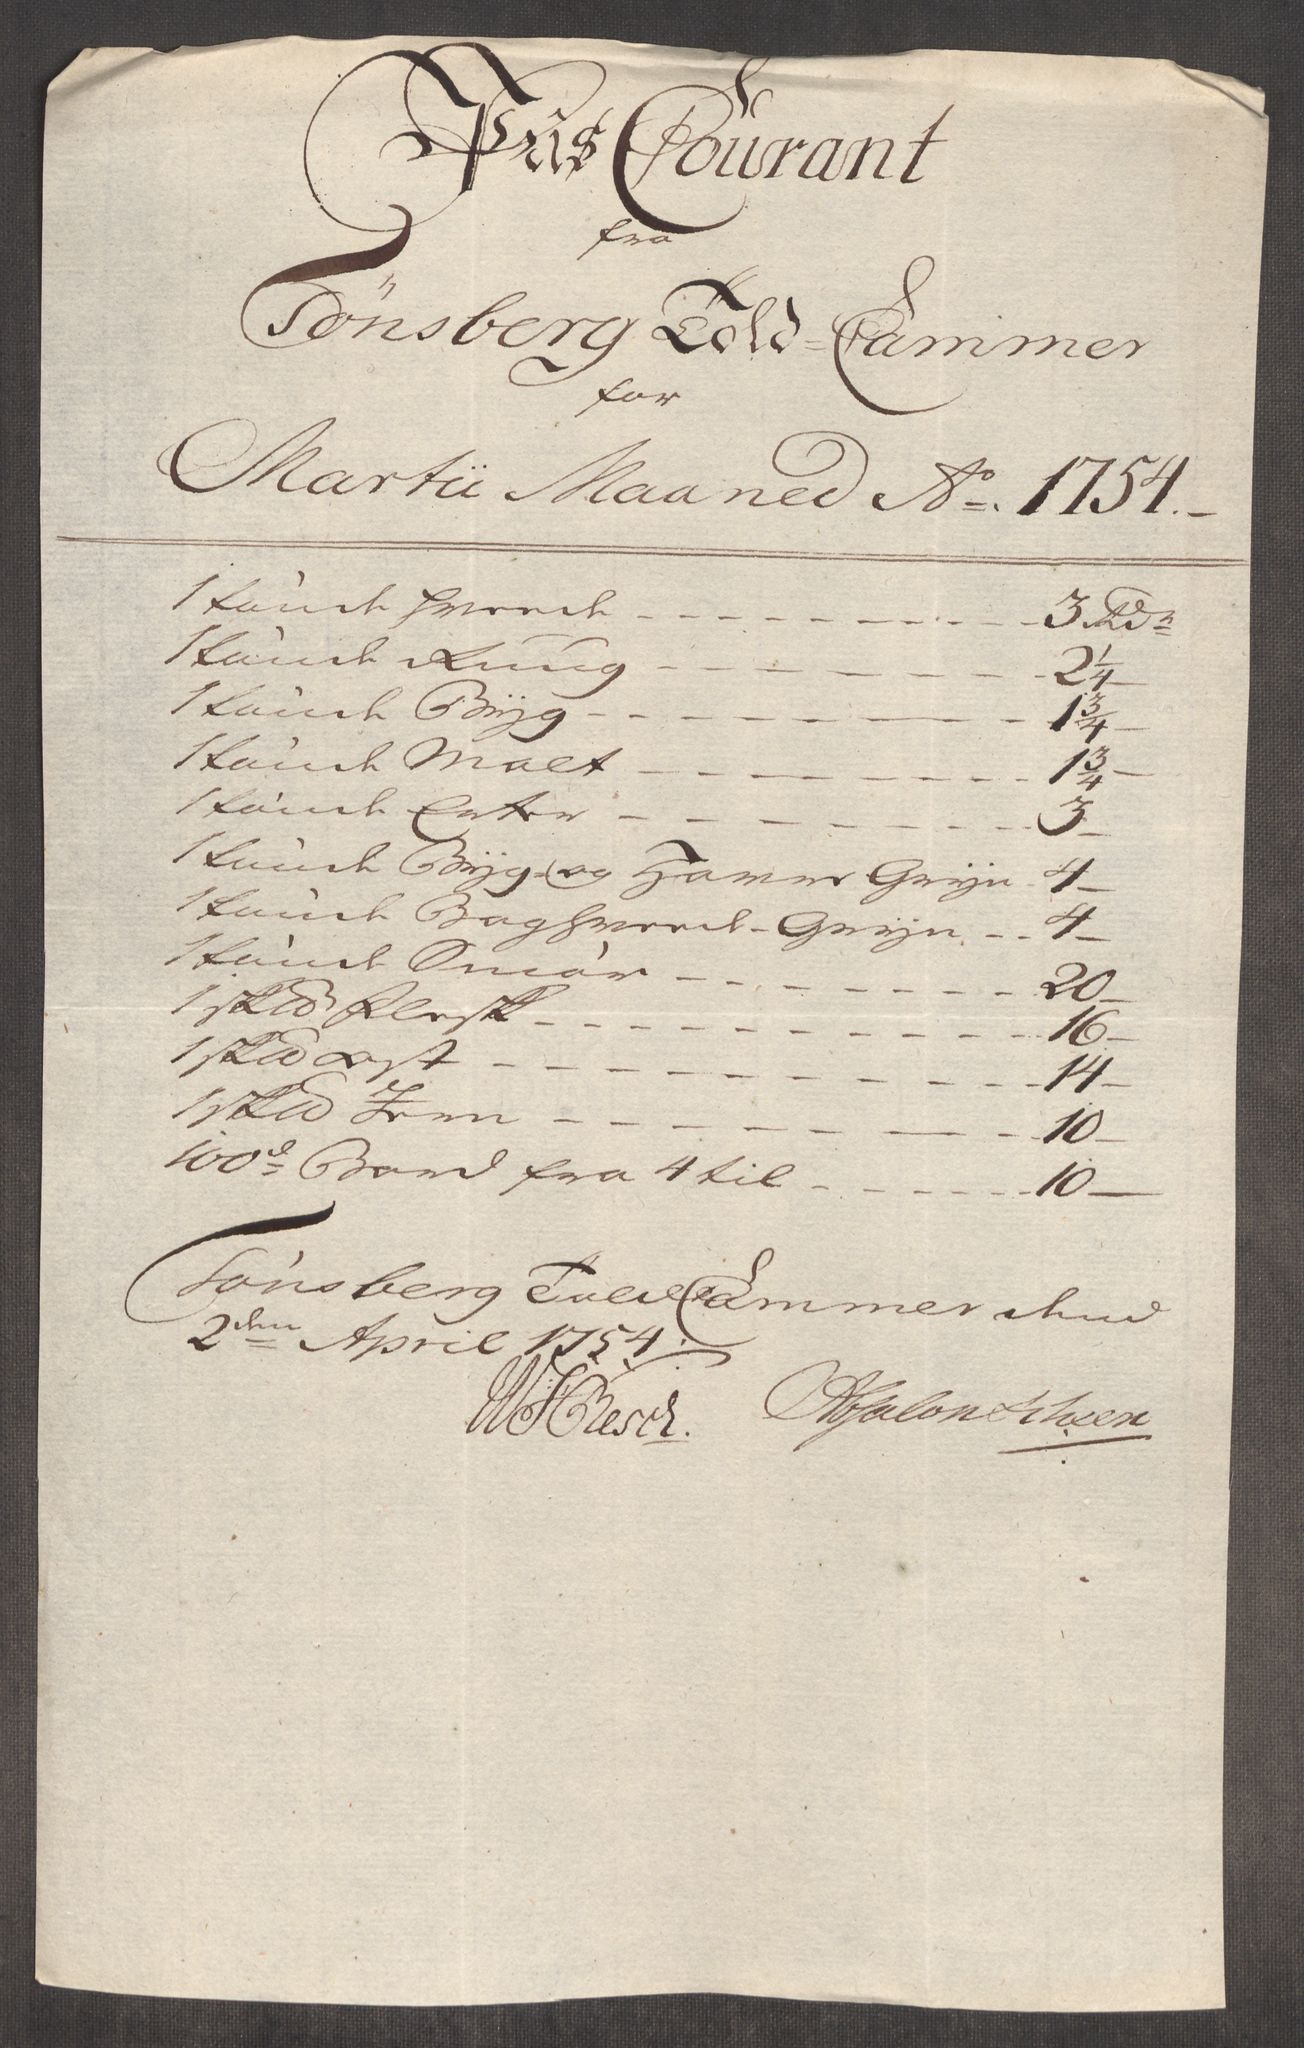 Priis Courant
fra
Tönsberg Told-Cammer
for
Martii Maaned Ao. 1754.-
1 tönde hveede - - - 3 Rdr
1 tönde Rüug - - - 2 1/4 -
1 tönde Byg - - - 1 3/4 -
1 tönde Malt - - - 1 3/4 -
1 tönde Erter - - - 3 -
1 tönde Byg- og Hawer Gryn 4 -
1 tönde Boghveede-Gryn - - 4 -
1 tönde Smör - - - 20 -
1 sk℔ Flesk - - - 16 -
1 sk℔ ost - - - 14 -
1 sk℔ - - - 10 -
100d Bord fra 4 til - - - 10 -
Tönsberg Told Cammer dend
2den April 1754.
Resch. Absalon